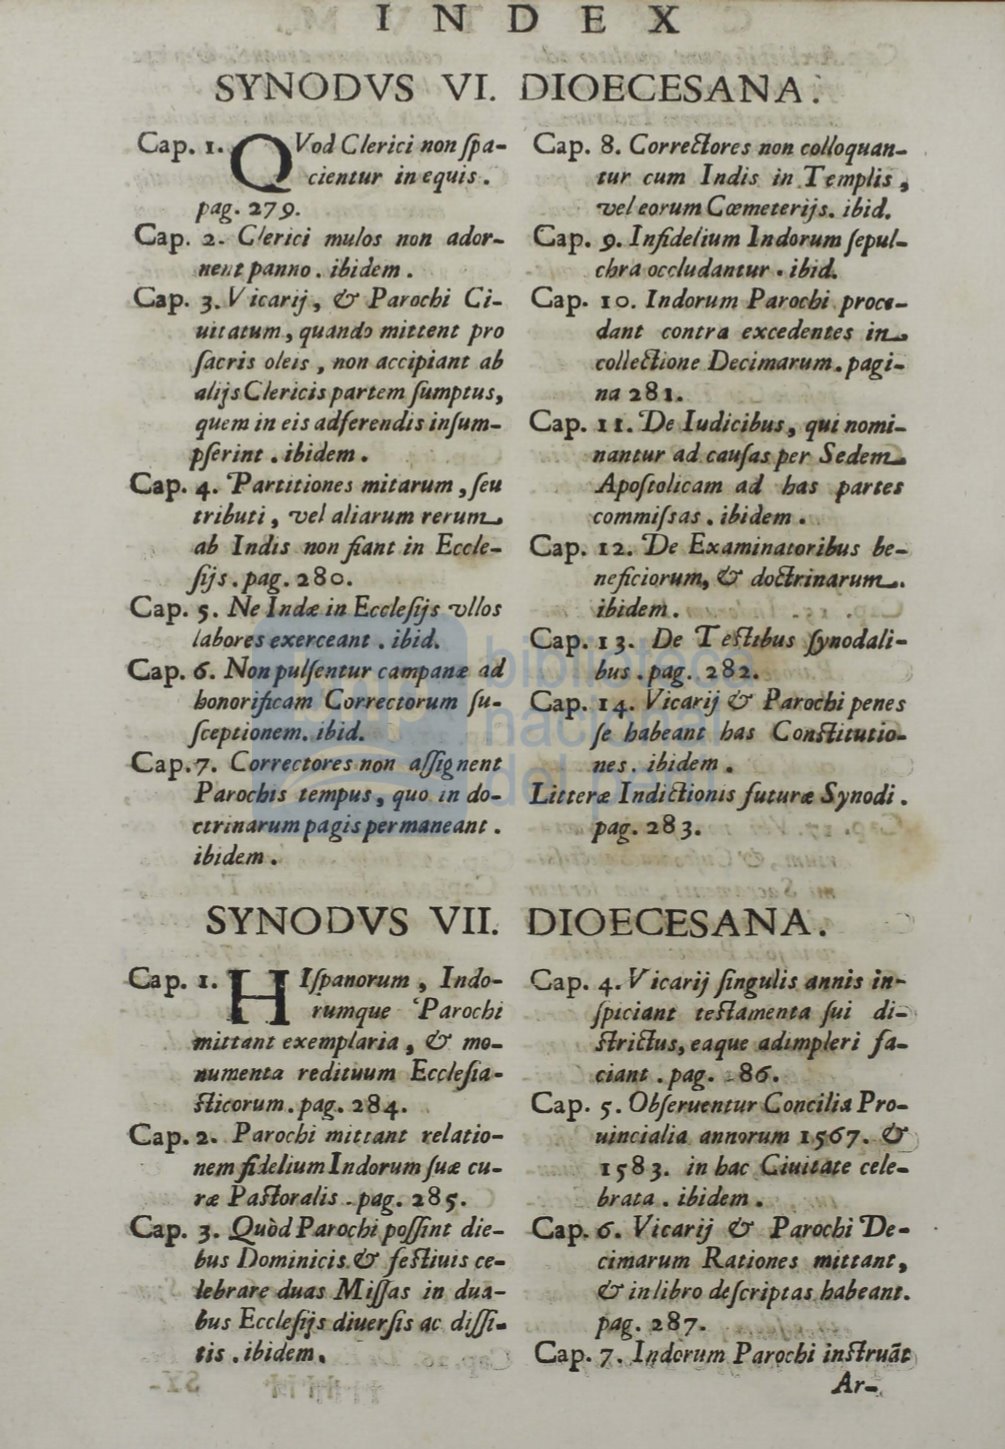 INDEX
SYNODVS VI. DIOECESANA.
Cap. 1. QVod Clerici non ſpa-
cientur in equis.
pag. 279.
Cap. 2. Clerici mulos non ador-
nent panno. ibidem.
Cap. 3. Vicarij, & Parochi Ci-
uitatum, quando mittent pro
ſacris oleis, non accipiant ab
alijs Clericis partem ſumptus,
quem in eis adferendis inſum-
pſerint. ibidem.
Cap. 4. Partitiones mitarum, ſeu
tributi, vel aliarum rerum,
ab Indis non fiant in Eccle-
ſijs. pag. 280.
Cap. 5. Ne Indæ in Eccleſijs vllos
labores exerceant. ibid.
Cap. 6. Non pulſentur campanæ ad
honorificam Correctorum ſu-
ſceptionem. ibid.
Cap. 7. Correctores non aſſignent
Parochis tempus, quo in do-
ctrinarum pagis permaneant.
ibidem.
Cap. 8. Correctores non colloquan-
tur cum Indis in Templis,
vel eorum Cœmeterijs. ibid.
Cap. 9. Infidelium Indorum ſepul-
chra occludantur. ibid.
Cap. 10. Indorum Parochi proce-
dant contra excedentes in
collectione Decimarum. pagi-
na 281.
Cap. 11. De Iudicibus, qui nomi-
nantur ad cauſas per Sedem
Apoſtolicam ad has partes
commiſsas. ibidem.
Cap. 12. De Examinatoribus be-
neficiorum, & doctrinarum.
ibidem.
Cap. 13. De Teſtibus ſynodali-
bus. pag. 282.
Cap. 14. Vicarij & Parochi penes
ſe habeant has Conſtitutio-
nes. ibidem.
Litteræ Indictionis futuræ Synodi.
pag. 283.
SYNODVS VII. DIOECESANA.
Cap. 1. HIſpanorum, Indo-
rumque Parochi
mittant exemplaria, & mo-
numenta redituum Eccleſia-
ſticorum. pag. 284.
Cap. 2. Parochi mittant relatio-
nem fidelium Indorum ſuæ cu-
ræ Paſtoralis. pag. 285.
Cap. 3. Quòd Parochi poſſint die-
bus Dominicis & feſtiuis ce-
lebrare duas Miſſas in dua-
bus Eccleſijs diuerſis ac diſſi-
tis. ibidem.
Cap. 4. Vicarij ſingulis annis in-
ſpiciant teſtamenta ſui di-
ſtrictus, eaque adimpleri fa-
ciant. pag. 286.
Cap. 5. Obſeruentur Concilia Pro-
uincialia annorum 1567. &
1583. in hac Ciuitate cele-
brata. ibidem.
Cap. 6. Vicarij & Parochi De-
cimarum Rationes mittant,
& in libro deſcriptas habeant.
pag. 287.
Cap. 7. Indorum Parochi inſtruãt
Ar-
biblioteca
nacional
del